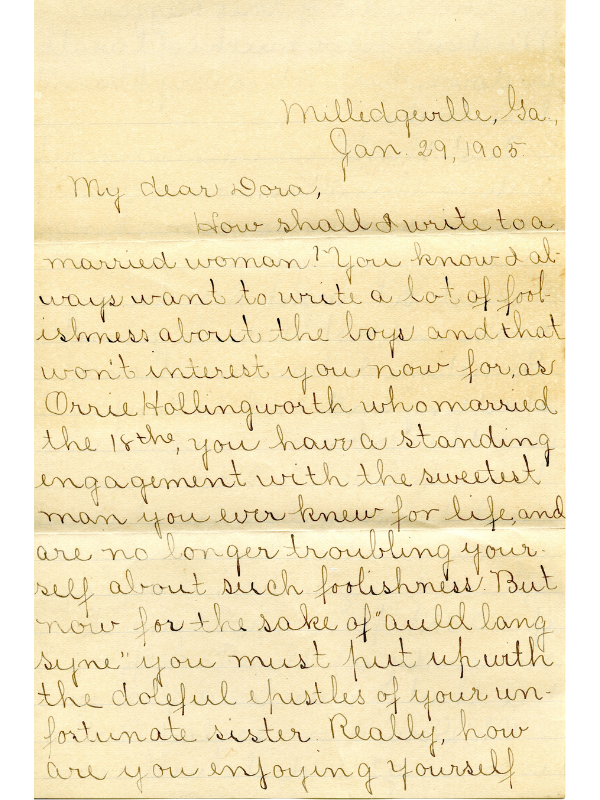 Milledgeville, Ga.,
Jan. 29, 1905.
My dear Dora,
How shall I write to a
married woman? You know I al-
ways want to write a lot of fool-
ishness about the boys and that
won't interest you now for, as
Orrie Hollingworth who married
the 18the, you have a standing
engagement with the sweetest
man you ever knew for life, and
are no longer troubling your-
self about such foolishness. But
now for the sake of "auld lang
syne" you must put up with
the doleful epistles of your un-
fortunate sister. Really, how
are you enjoying yourself